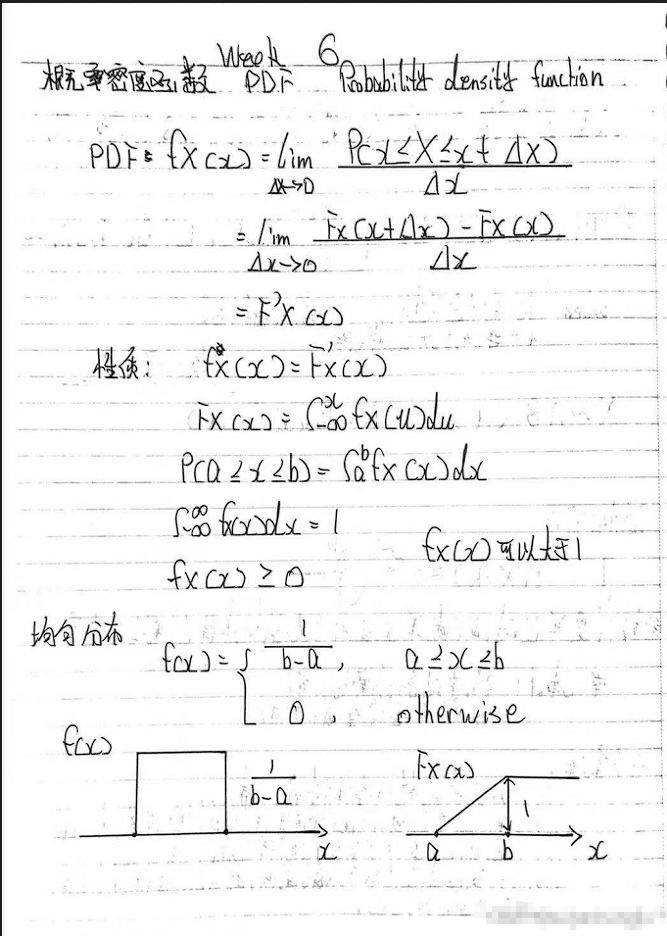 Week 6
概率密度函数 PDF Probability density function
PDF: fX(x) = lim P(x≤X≤x+Δx) / Δx
Δx→0
= lim Fx(x+Δx) - Fx(x) / Δx
Δx→0
= F'X(x)
性质: fx(x) = Fx'(x)
Fx(x) = ∫-∞^x fx(u)du
P(a≤x≤b) = ∫a^b fx(x)dx
∫-∞^∞ f(x)dx = 1
fx(x) 可以大于1
fx(x) ≥ 0
均匀分布
f(x) = { 1/(b-a), a≤x≤b
0, otherwise
f(x) 1/(b-a) x
Fx(x) 1 a b x